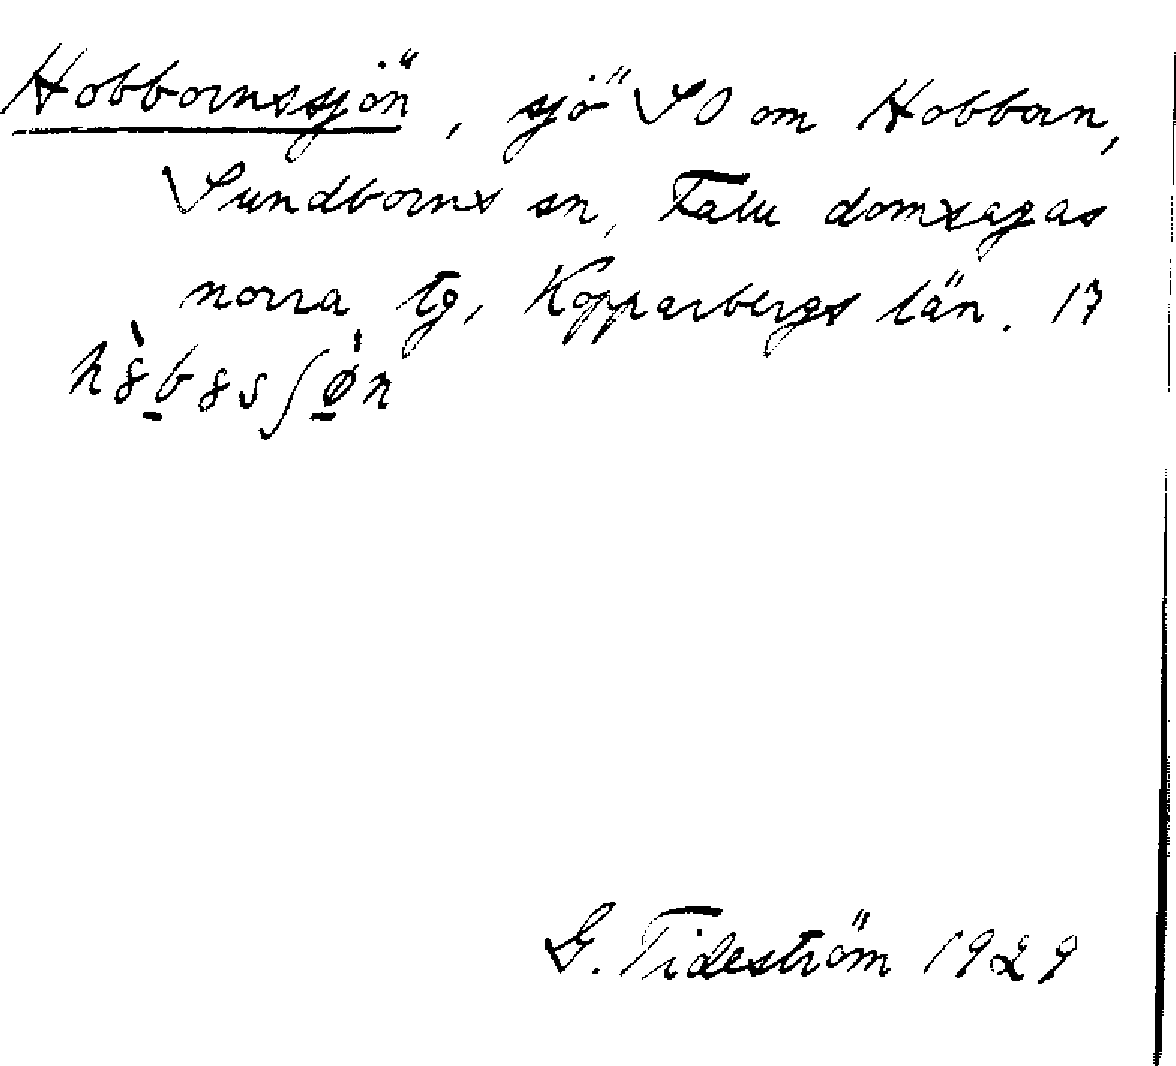 Hobbornssjön, sjö SO om Hobborn,
Sundborns sn, Falu domsagas
norra tg, Kopparbergs län. 13
G. Tideström 1929